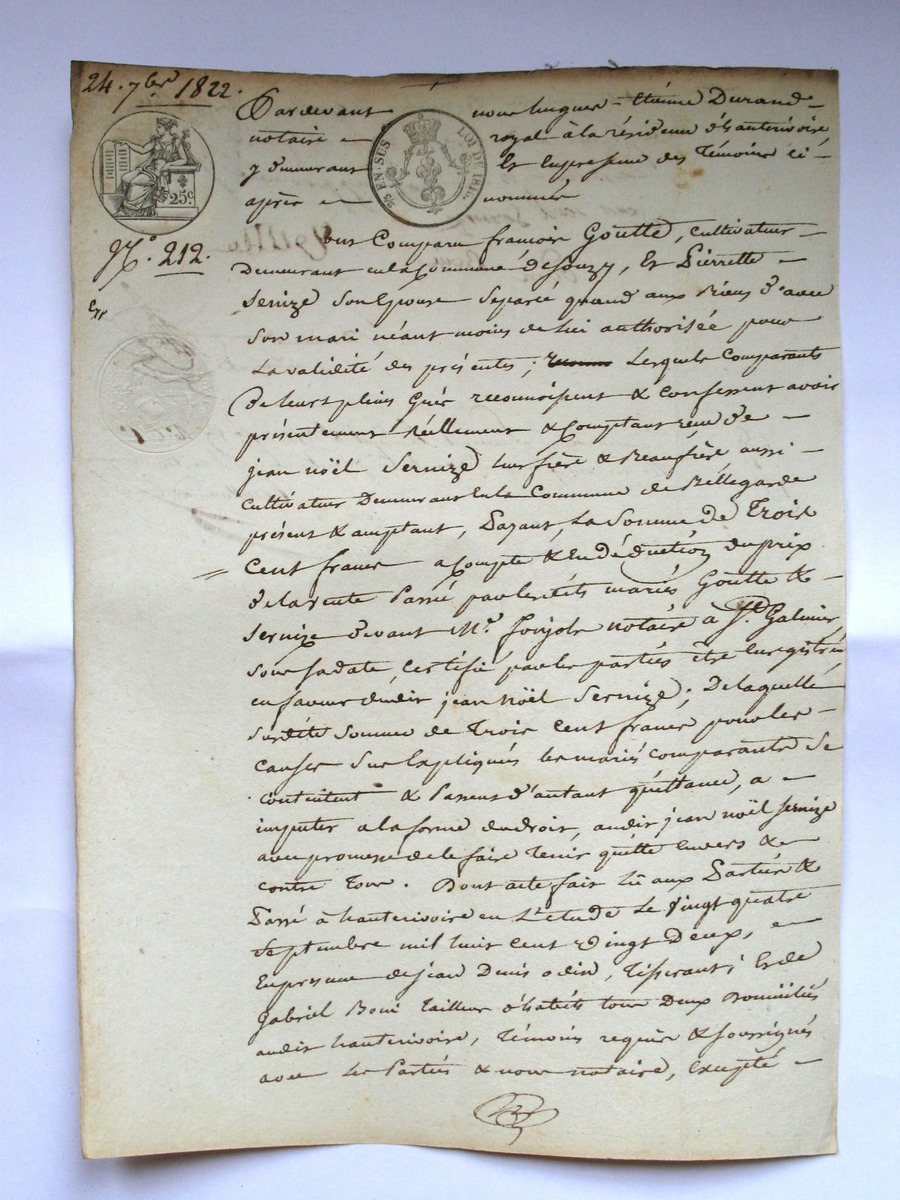 24. 7bre 1822.
Pardevant nous hugues-étiènne Durand-
notaire - royal à la résidence d'hauterivoire
y demeurant Et En presence des Témoins ci-
après - nommés
25 EN SUS LOI DE 1816
25c
N° 212.
Ont Comparu francois Goutte, cultivateur -
Demeurant en la commune de souzy, Et Pierrette -
Sernize son Epouse separée quand aux Biens d'avec
son mari néant moins de lui authorisée pour
la validité des présentes; Lesquels Comparants
de leurs pleins Grés reconnoissent & confessent avoir
présentement Réellement & Comptant reçu de -
jean noël Sernize leur frère & Beaufrère aussi -
cultivateur Demeurant En la Commune de Bellegarde
présent & acceptant, Payant, La Somme de Trois
Cent francs acompte & En déduction du prix
de la vente Passé par lesdits mariés Goutte & -
Sernize devant Me. notaire à St. Galmier
sous sa date, certifié par les parties être Enregistrée
en faveur dudit jean noël Sernize; De laquelle
susdite somme de Trois Cent francs pour les -
causes sus Expliquées les mariés comparants se
contentent & Passent d'autant quittance, a -
imputer a la forme du droit, audit jean noël Sernize
avec promesse de le faire Tenir quitte Envers & -
contre Tous. Dont acte fait lu aux Parties &
Passé à hauterivoire en L'etude Le vingt quatre
Septembre mil huit cent vingt Deux, -
En presence de jean Denis odin, Tisserant; Et de
Gabriel Boni Tailleur d'habits tous Deux Domiciliés
audit hauterivoire, Témoins requis & soussignés
avec les Parties & nous notaire, Excepté -